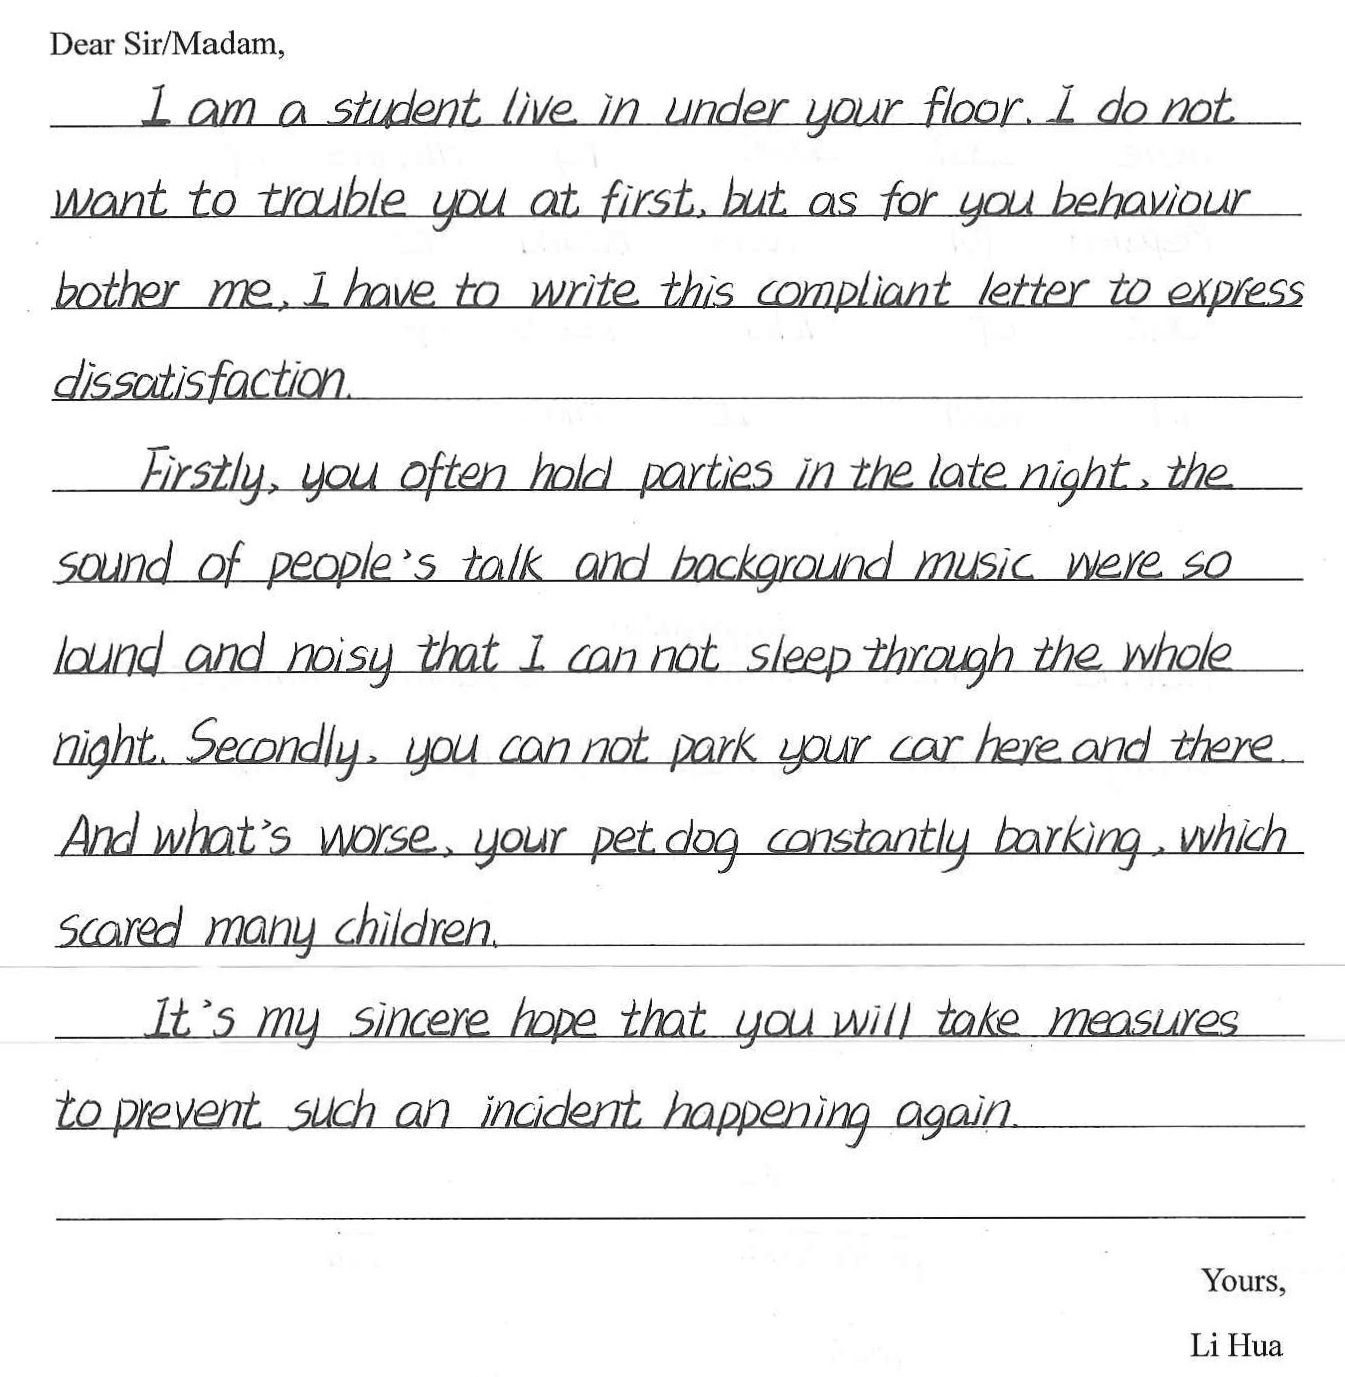 Dear Sir/Madam,
I am a student live in under your floor. I do not
want to trouble you at first, but as for you behaviour
bother me, I have to write this compliant letter to express
dissatisfaction.
Firstly, you often hold parties in the late night, the
sound of people's talk and background music were so
lound and noisy that I can not sleep through the whole
night. Secondly, you can not park your car here and there.
And what's worse, your pet dog constantly barking, which
scared many children.
It's my sincere hope that you will take measures
to prevent such an incident happening again.
Yours,
Li Hua